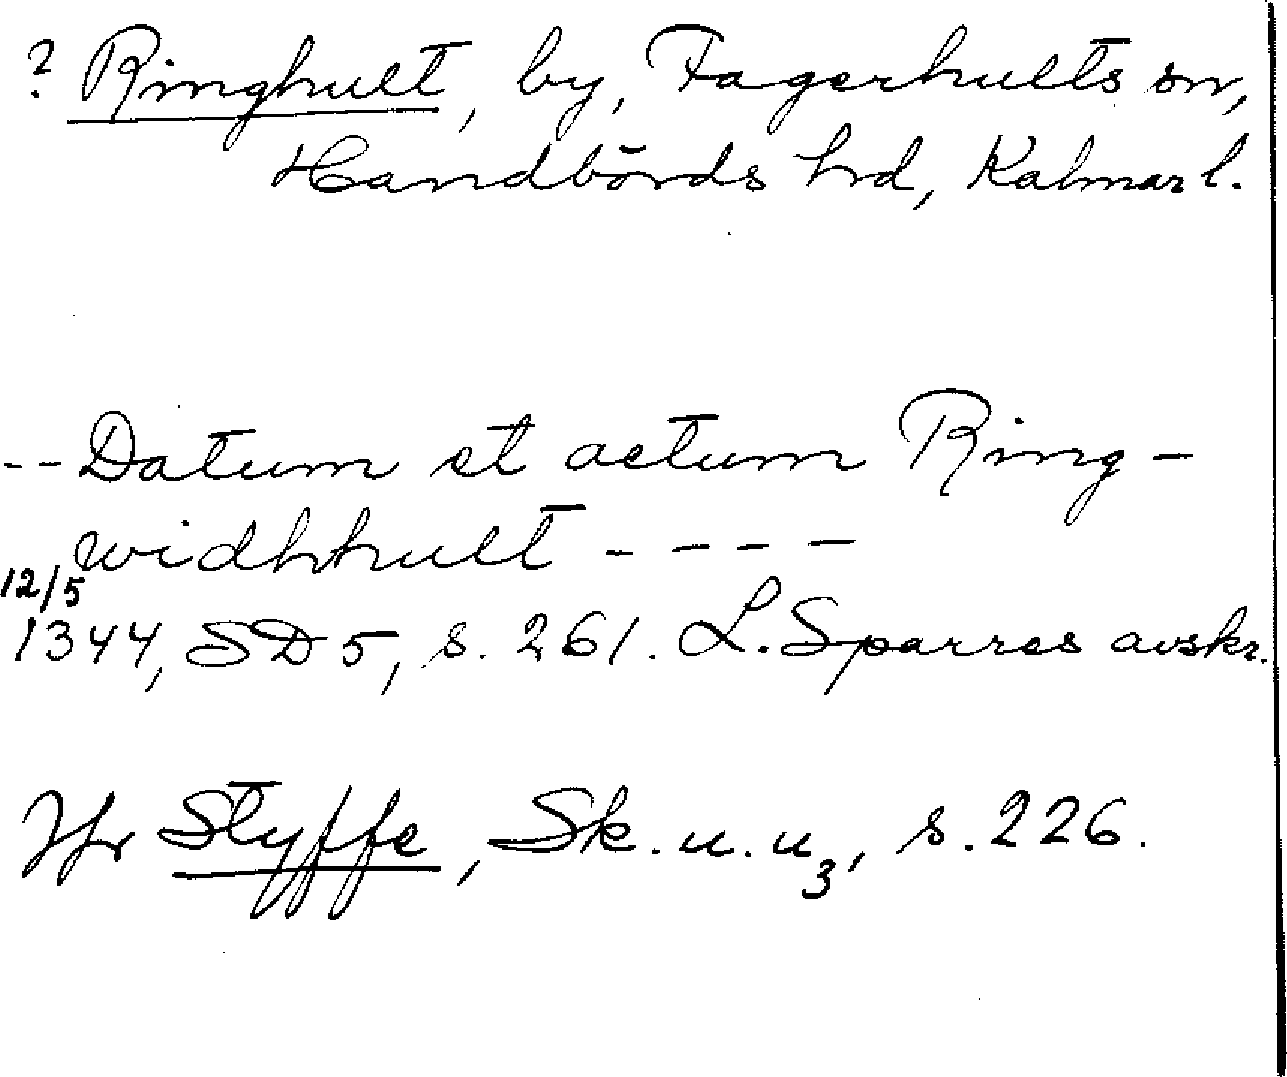 ? Ringhult, by, Fagerhults sn,
Handbörds hd, Kalmar l.
-- Datum et actum Ring-
widhhult ----
12/5
1344, SD 5, s. 261. L. Sparres avskr.
Jfr Styffe, Sk. u. u3, s. 226.